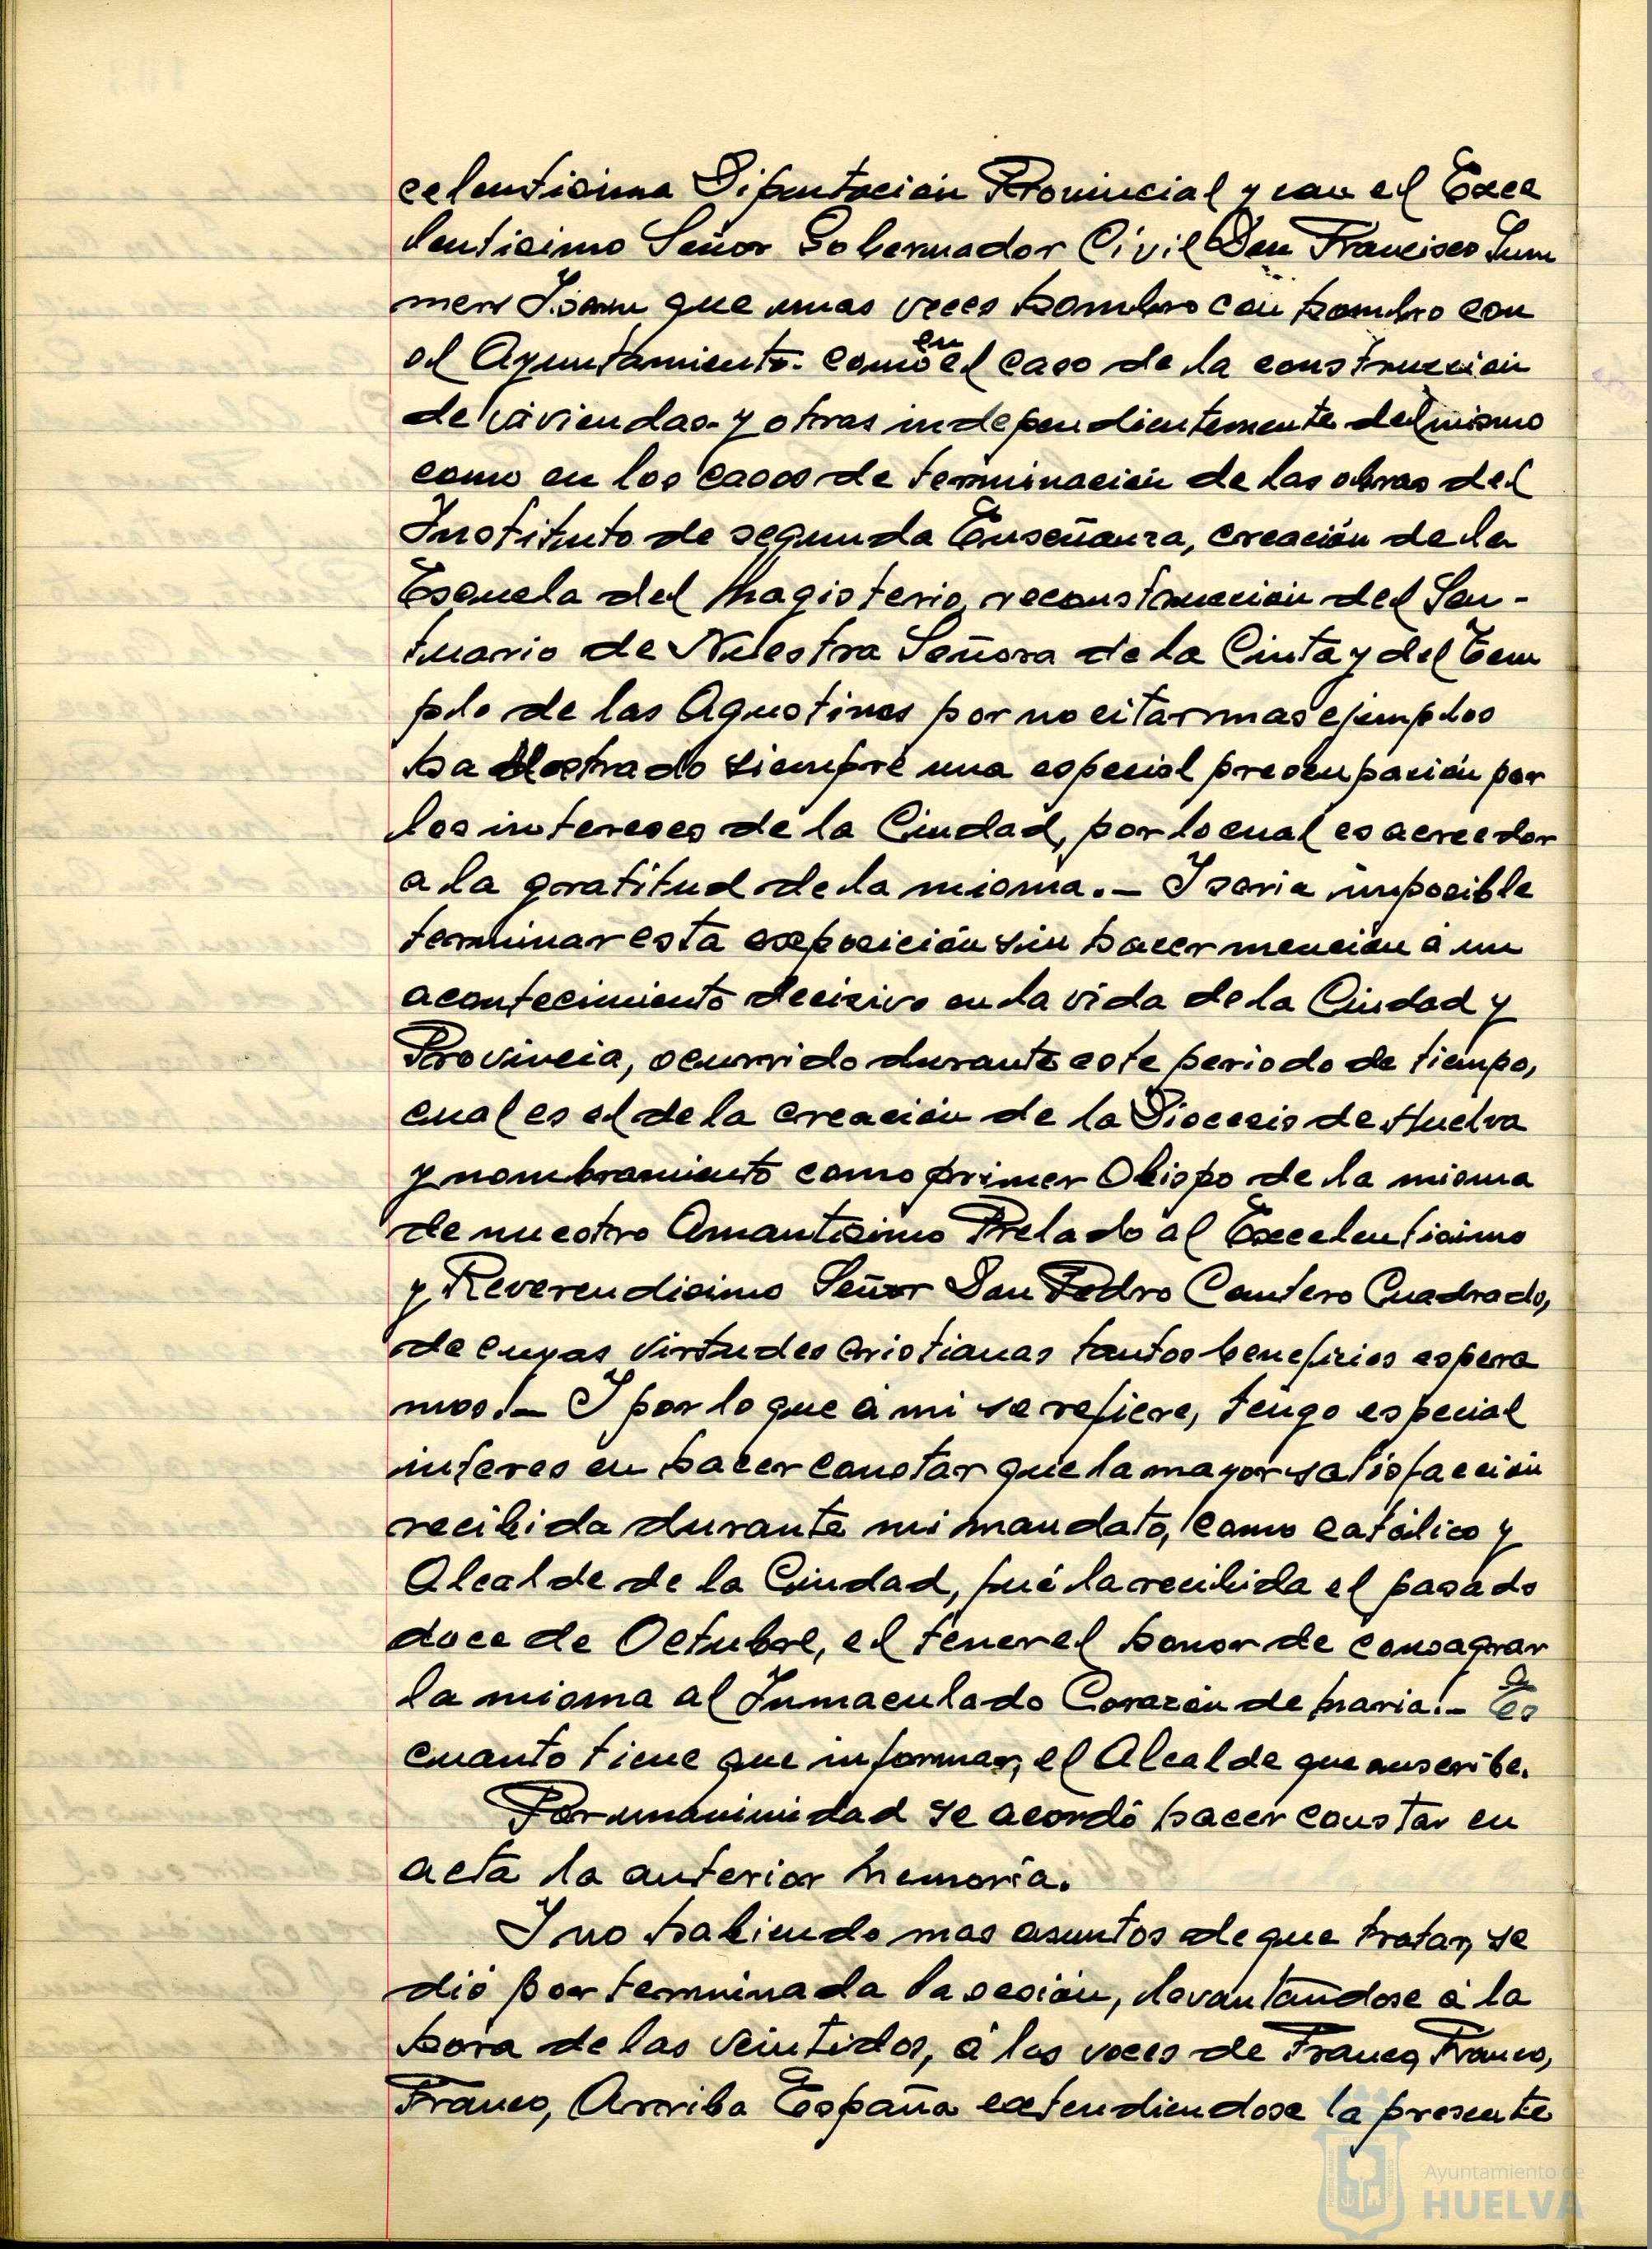 celentisima Diputación Provincial y con el Exce
lentisimo Señor Gobernador Civil Don Francisco Sum
mers Isern que unas veces hombro con hombro con
el Ayuntamiento. como en el caso de la construcción
de viviendas- y otras independientemente del mismo
como en los casos de terminación de las obras del
Instituto de segunda Enseñanza, creación de la
Escuela del Magisterio, reconstrucción del San-
tuario de Nuestra Señora de la Cinta y del Tem
plo de las Agustinas por no citar mas ejemplos
ha mostrado siempre una especial preocupación por
los intereses de la Ciudad, por lo cual es acreedor
a la gratitud de la misma.- I seria imposible
terminar esta exposición sin hacer mención á un
acontecimiento decisivo en la vida de la Ciudad y
Provincia, ocurrido durante este periodo de tiempo,
cual es el de la creación de la Diocesis de Huelva
y nombramiento como primer Obispo de la misma
de nuestro Amantisimo Prelado al Excelentisimo
y Reverendisimo Señor Don Pedro Cantero Cuadrado,
de cuyas virtudes cristianas tantos beneficios espera
mos.!- I por lo que á mi se refiere, tengo especial
interes en hacer constar que la mayor satisfacción
recibida durante mi mandato, como católico y
Alcalde de la Ciudad, fué la recibida el pasado
doce de Octubre, el tener el honor de consagrar
la misma al Inmaculado Corazón de Maria.!- Es
cuanto tiene que informar, el Alcalde que suscribe.
Por unanimidad se acordó hacer constar en
acta la anterior Memoria.
I no habiendo mas asuntos de que tratar, se
dió por terminada la sesión, levantandose á la
hora de las veintidos, á las voces de Franco, Franco,
Franco, Arriba España extendiendose la presente
Ayuntamiento de
HUELVA